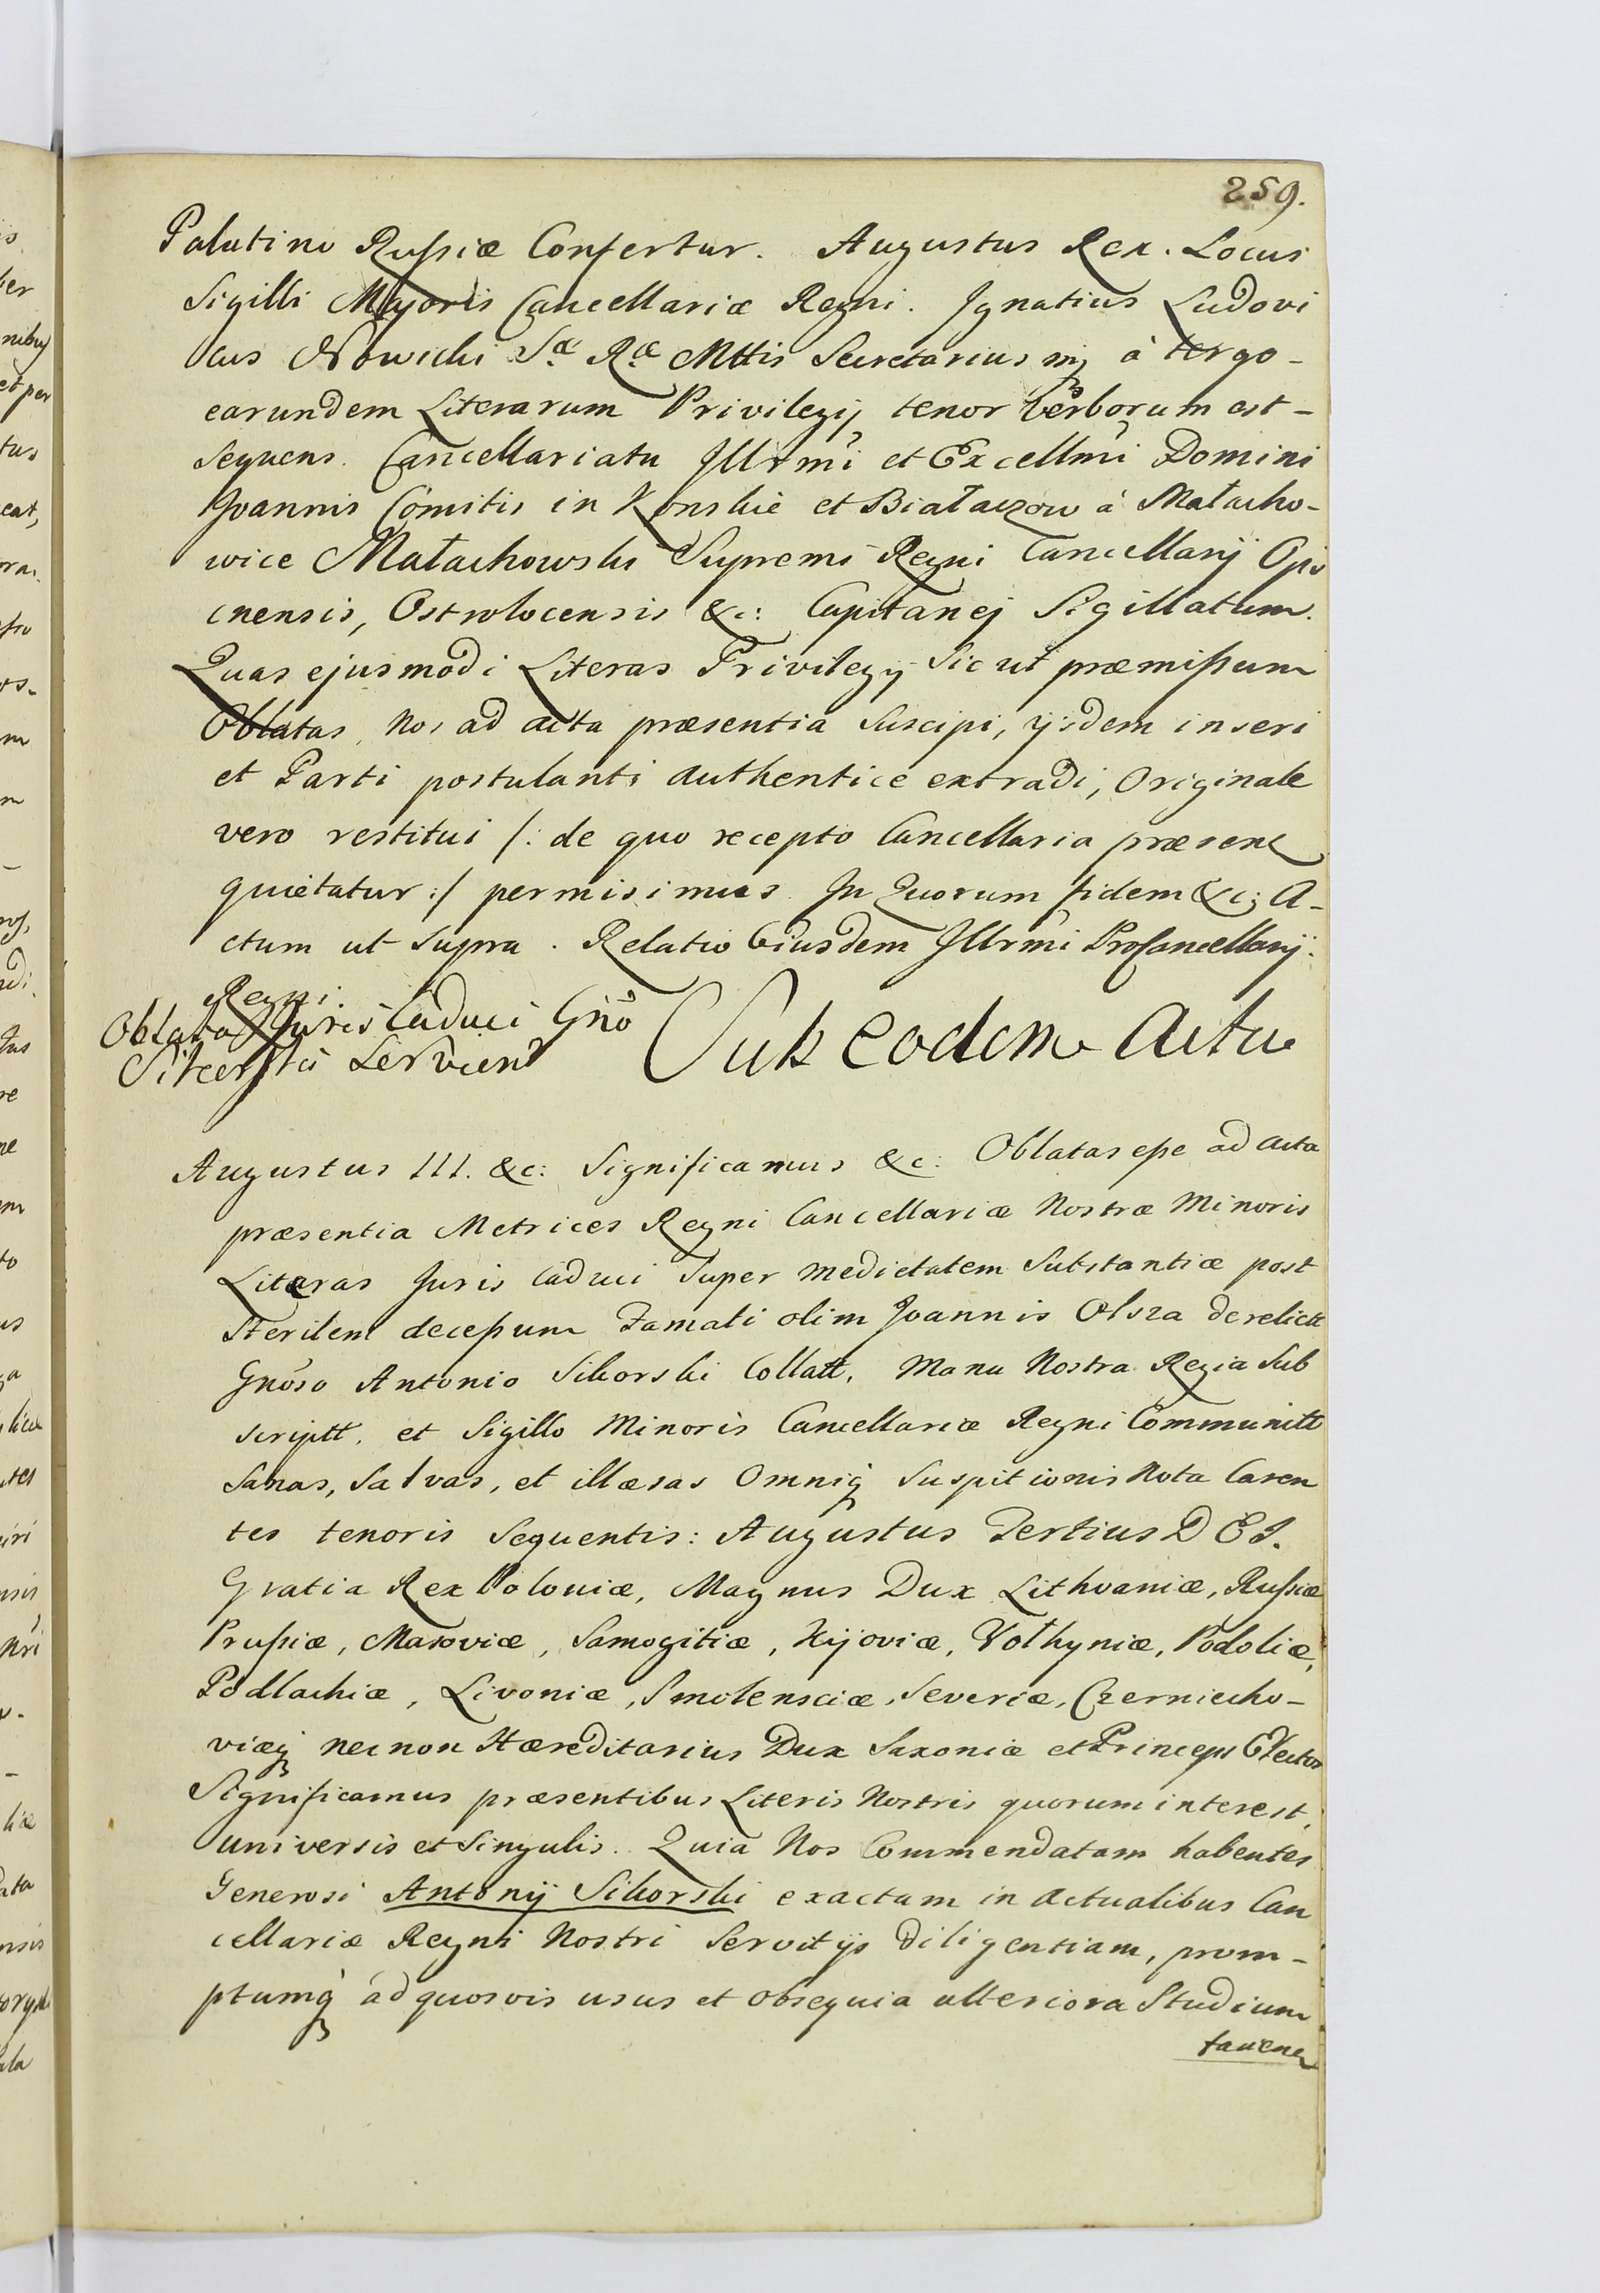 259.
Palatino Rußiæ Confertur. Augustus Rex. Locus
Sigilli Majoris Cancellariæ Regni. Ignatius Ludovi
cus Nowicki Sæ Ræ Mttis Secretarius mp à tergo –
earundem Literarum Privilegij tenor Verborum est –
Sequens. Cancellariatu Illrmi et Excellmi Domini
Joannis Comitis in Konskie et Białaczow à Małacho-
wice Małachowski Supremi Regni Cancellarij Opo
cnensis, Ostrolocensis &c: Capitanej Sigillatum.
Quas ejusmodi Literas Privilegij Sic ut præmißum
Oblatas, Nos ad acta præsentia Suscipi, ijsdem inseri
et Parti postulanti authentice extradi, Originale
vero restitui /: de quo recepto Cancellaria præsens
quietatur :/ permisimus. In Quorum fidem &c; A-
ctum ut Supra. Relatio Ejusdem Illrmi ProCancellarij.
Regni
Oblata Juris Caduci Gño
Sikorski Servient
Sub eodem Actu
Augustus III. &c: Significamus &c: Oblatas eße ad Acta
præsentia Metrices Regni Cancellariæ Nostræ Minoris
Literas Juris Caduci Super medietatem Substantiæ post
Sterilem deceßum Famati olim Joannis Olsza derelictæ
Gnoso Antonio Sikorski Collatt, Manu Nostra Regia Sub
scriptt, et Sigillo Minoris Cancellariæ Regni Communitt
Sanas, Salvas, et illæsas Omniq Suspitionis Nota Caren
tes tenoris Sequentis: Augustus Tertius D EI.
Gratia Rex Poloniæ, Magnus Dux Lithvaniæ, Rußiæ
Prußiæ, Masoviæ, Samogitiæ, Kijoviæ, Vołhyniæ, Podoliæ,
Podlachiæ, Livoniæ, Smolensciæ, Severiæ, Czerniecho-
viæq necnon Hæreditarius Dux Saxoniæ et Princeps Elector
Significamus præsentibus Literis Nostris quorum interest,
universis et Singulis. Quia Nos Commendatam habentes
Generosi Antonij Sikorski exactam in actualibus Can
cellariæ Regni Nostri Servitijs diligentiam, prom-
ptumq ad quosvis usus et obsequia ulteriora Studium